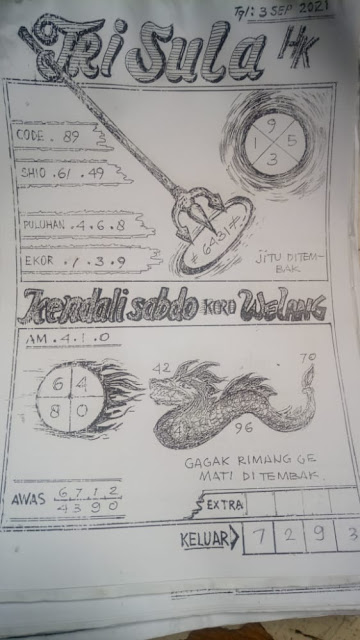 Tgl: 3 SEP 2021
Tri Sula HK
CODE . 89
SHIO . 61 . 49
PULUHAN . 4 . 6 . 8
EKOR . 1 . 3 . 9
9
1 5
3
* 6431 *
JITU DITEM-
BAK
Kendali sabdo KERO WELANG
AM . 4 . 1 . 0
6 4
8 0
42
70
96
GAGAK RIMANG GE
MATI DI TEMBAK.
AWAS 6 7 1 2
4 3 9 0
EXTRA
KELUAR 7 2 9 3